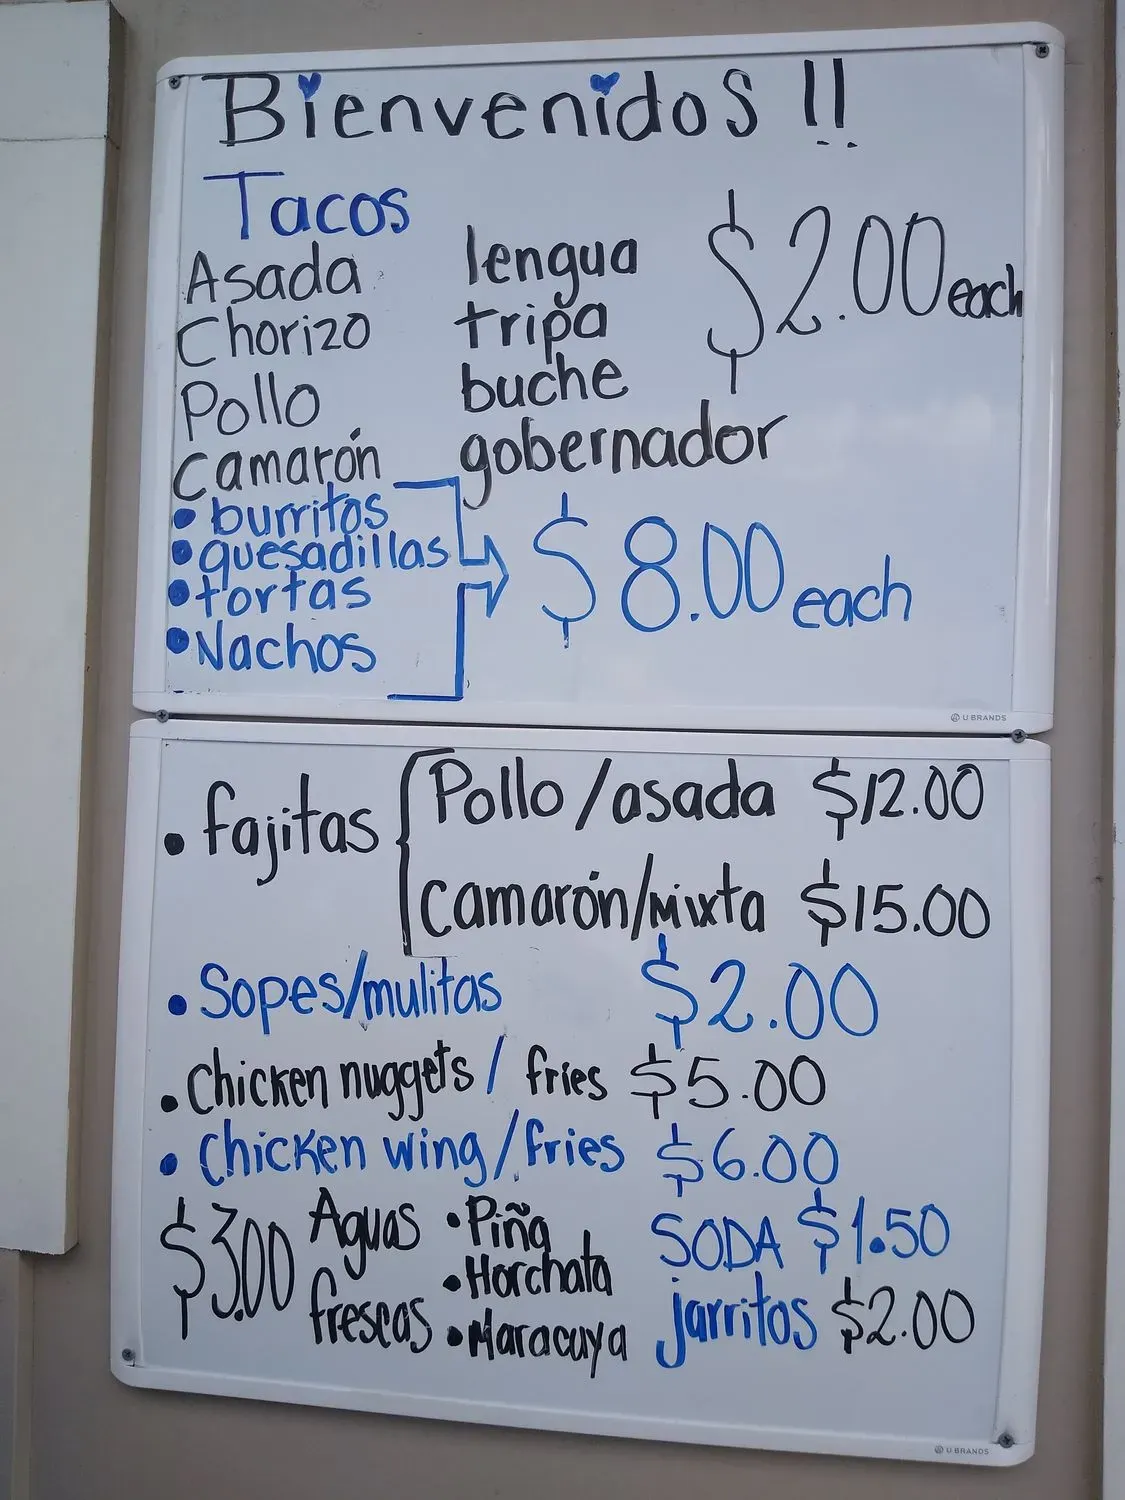 Bienvenidos !!
Tacos
Asada lengua $2.00 each
Chorizo tripa
Pollo buche
Camarón gobernador
• burritos
• quesadillas
• tortas
• Nachos
$8.00 each
U BRANDS
• fajitas
Pollo/asada $12.00
Camarón/Mixta $15.00
• Sopes/mulitas $2.00
• Chicken nuggets / fries $5.00
• Chicken wing/fries $6.00
$3.00 Aguas frescas
• Piña
• Horchata
• Maracuya
SODA $1.50
jarritos $2.00
U BRANDS